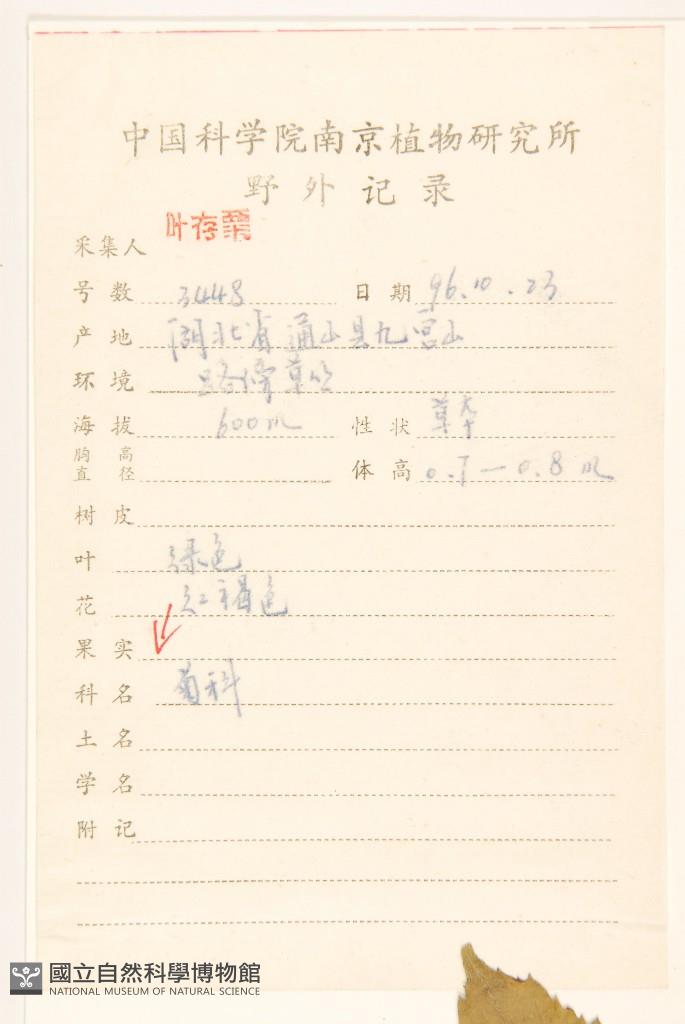 中国科学院南京植物研究所
野外记录
采集人 叶存粟
号数 3448 日期 96.10.23
产地 湖北省通山县九宫山
环境 路傍草丛
海拔 600m 性状 草本
胸高直径 体高 0.7—0.8m
树皮
叶 绿色
花 红褐色
果实
科名 菊科
土名
学名
附记
國立自然科學博物館
NATIONAL MUSEUM OF NATURAL SCIENCE